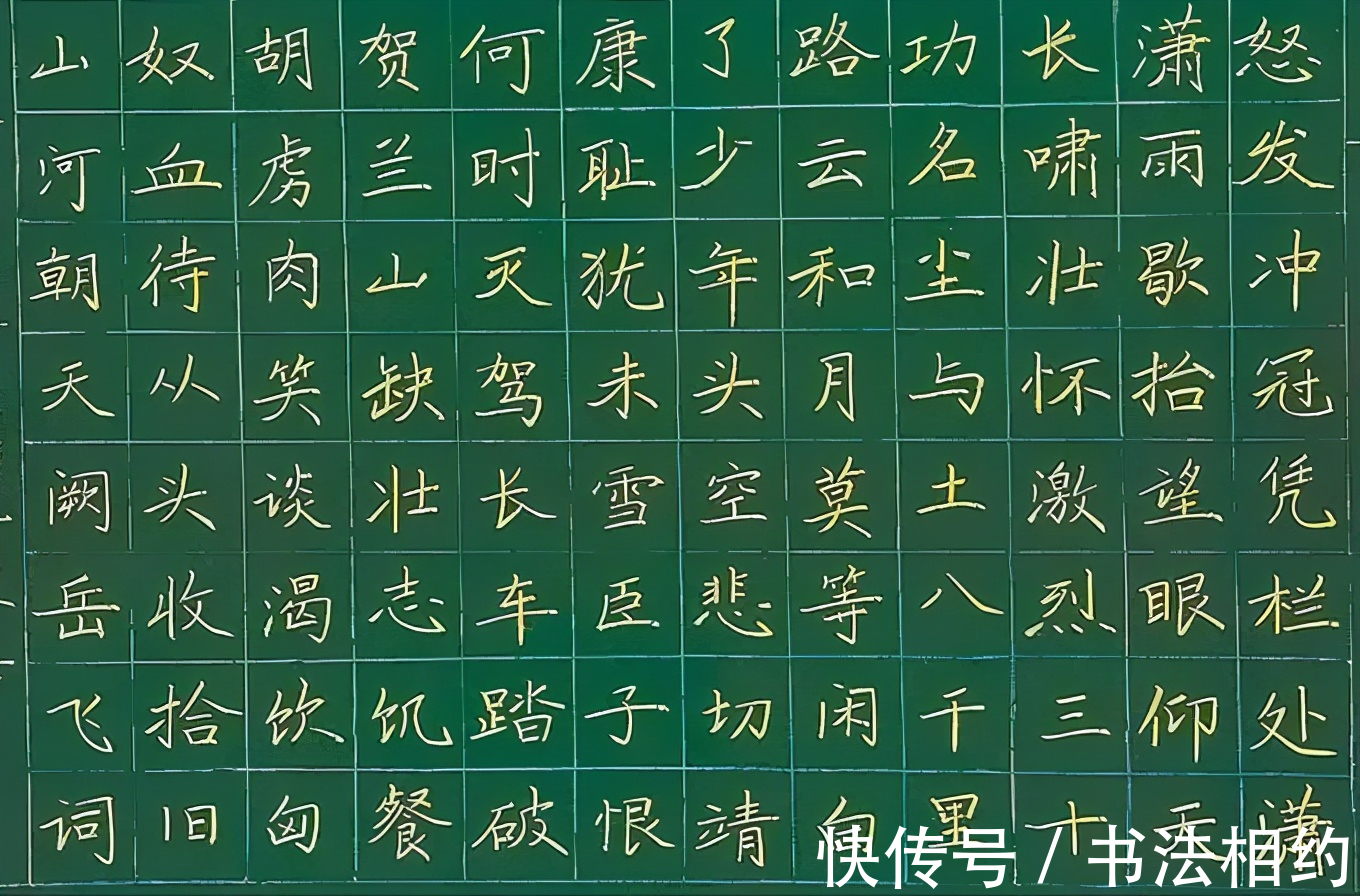 怒发冲冠凭栏处潇
潇雨歇抬望眼仰天
长啸壮怀激烈三十
功名尘与土八千里
路云和月莫等闲白
了少年头空悲切靖
康耻犹未雪臣子恨
何时灭驾长车踏破
贺兰山缺壮志饥餐
胡虏肉笑谈渴饮匈
奴血待从头收拾旧
山河朝天阙岳飞词
快传号 / 书法相约